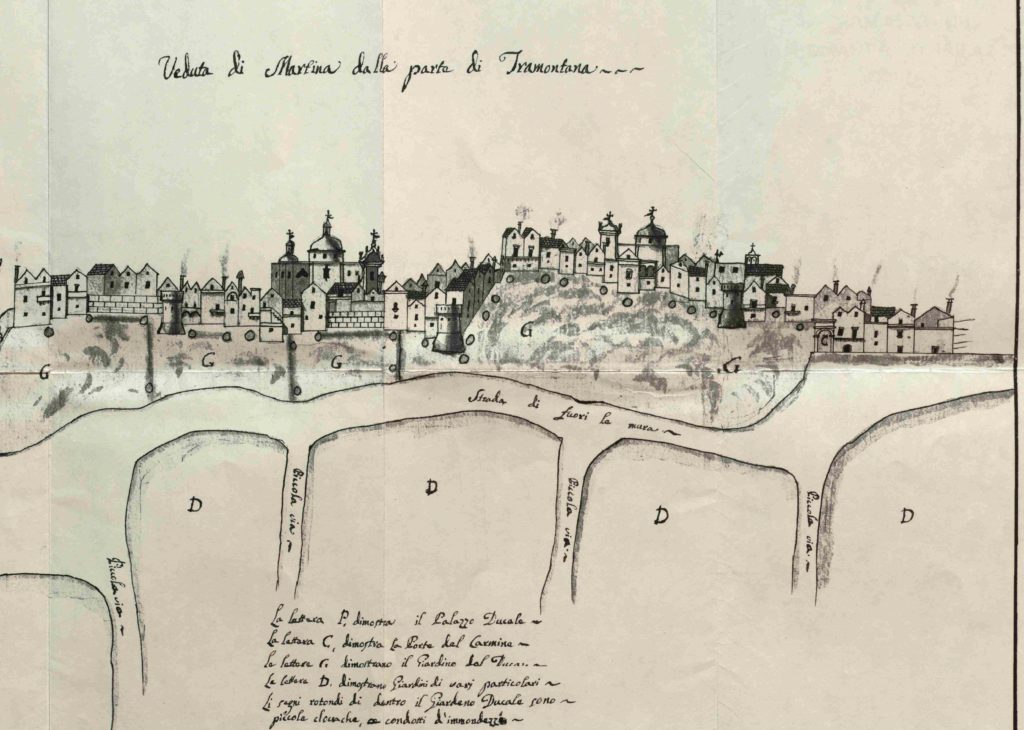 Veduta di Martina dalla parte di Tramontana
G
G
G
G
G
Strada di fuori le mura
D
D
D
D
Piccola via
Piccola via
Piccola via
Piccola via
La lettera P. dimostra il Palazzo Ducale
La lettera C, dimostra la Porte del Carmine
Le lettere G. dimostrano il Giardino del Duca
Le lettere D. dimostrano Giardini di varj particolari
Li segni rotondi di dentro il Giardeno Ducale sono
piccole clocache, o condotti d'immondezzi